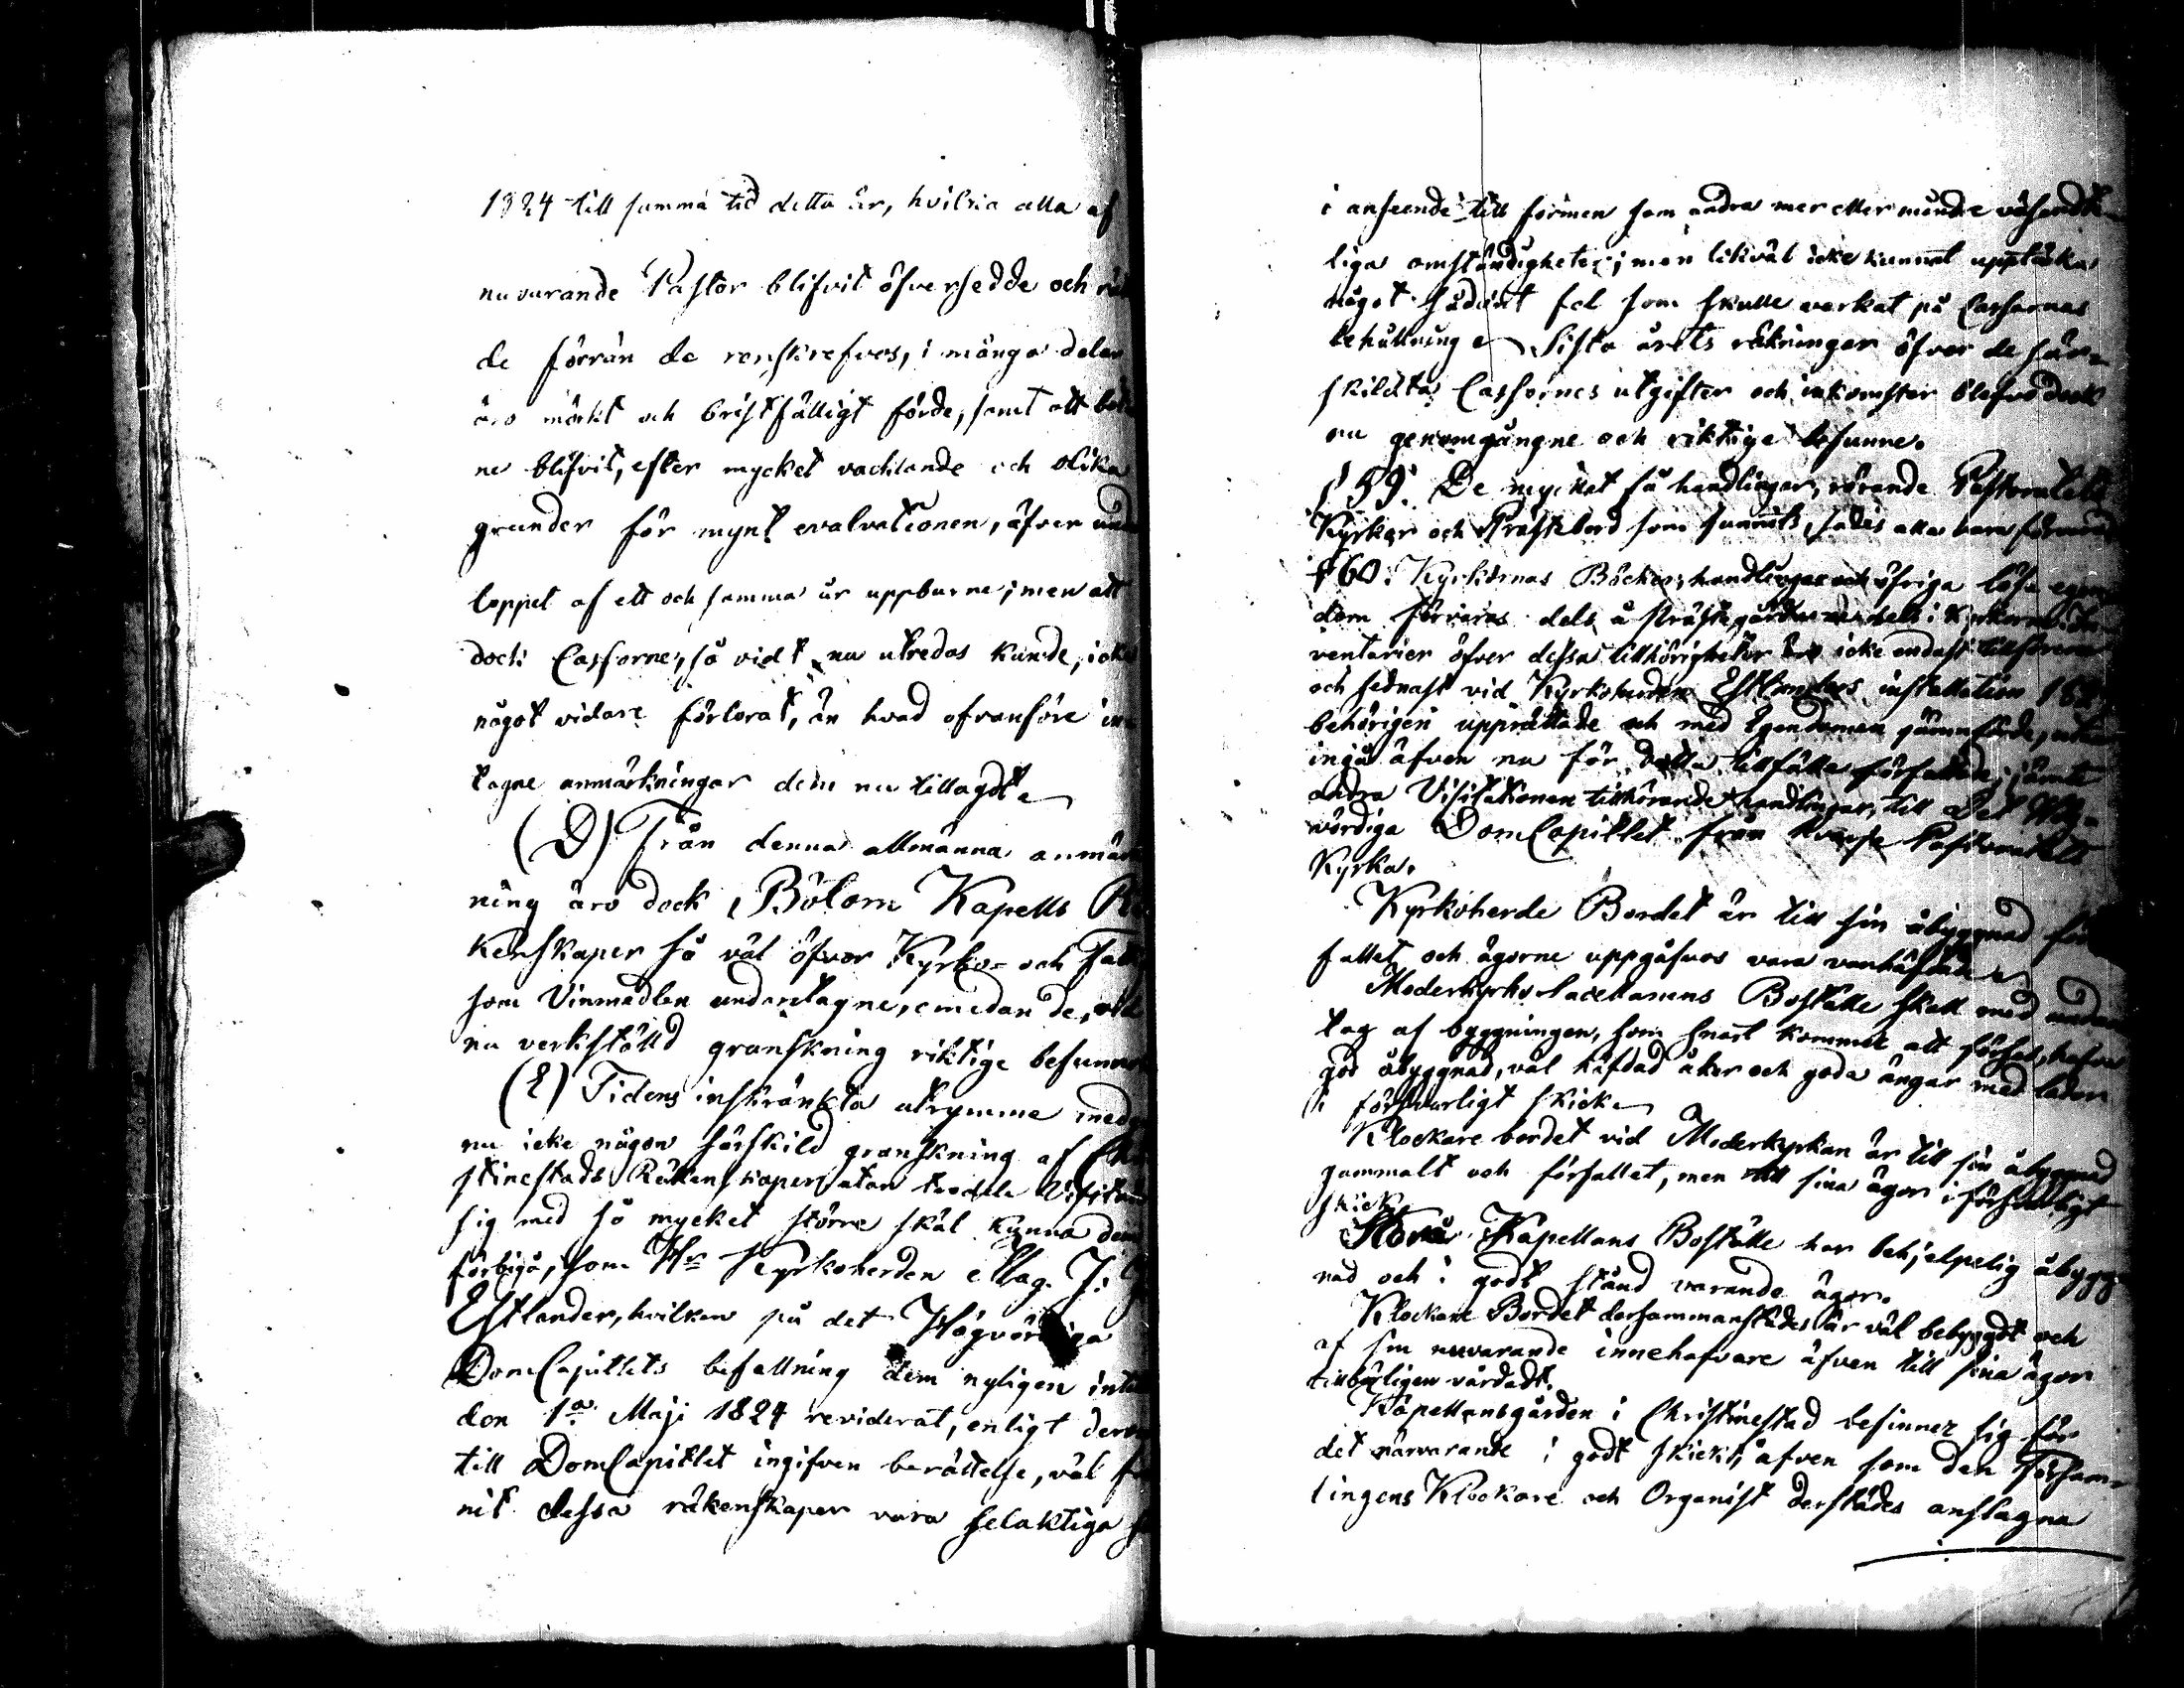 1824 till samma tid detta år, hvilka alla af
nuvarande Pastor blifvit öfversedde och
de förrän de renskrefvos, i många delar
äro mörkt och bristfälligt förde, samt att
ne blifvit, efter mycket vacklande och olika
grunder för mynt evalvationen, äfven
loppet af ett och samma år uppburne; men att
dock Cassorne, så vidt nu utredas kunde, icke
något vidare förlorat, än hvad ofvanföre in
tagne anmärkningar dem nu tillagdt.
(D) Från denna allmänna anmärk
ning äro dock Bötom Kapells Rä
kenskaper så väl öfver Kyrko- och
som Vinmedlen undantagne, emedan de, vid
nu verkställd granskning riktige befunnos
(E) Tidens inskränkta utrymme
nu icke någon särskild granskning af Chri
stinestads Räkenskaper utan
sig med så mycket större skäl kunna dem
förbigå, som Hr Kyrkoherden Mag. J:
Estlander, hvilken på det Högvördiga
DomCapitlets befallning dem nyligen intill
den 1a Maji 1824 reviderat, enligt
till DomCapitlet ingifven berättelse, väl
nit dessa räkenskaper vara felaktiga
i anseende till formen som andra mer eller mindre väsendt
liga omständigheter; men likväl icke kunnat upptäcka
något sådant fel som skulle verkat på Cassornas
behållning. Sista årets räkningar öfver de sär-
skildta Cassornes utgifter och inkomster blefvo dock
nu genomgångne och riktige befunne.
§ 59. De mycket få handlingar, rörande Pastoratets
Kyrkor och Prästebord som funnits, sades alla vara
§ 60. Kyrkornas Böcker, handlingar och öfriga lösa egen
dom förvaras dels å Prästegården dels i Kyrkorne
ventarier öfver dessa tillhörigheter äro icke endast tillförene
och sednast vid Kyrkoherden Estlanders installation
behörigen upprättade och med Egendomen jämnförde, utan
ingå äfven nu för detta tillfälle författade, jämte
andra Visitationen tillhörande handlingar, till Det Hög-
vördiga DomCapitlet från Pastoratets
Kyrka.
Kyrkoherde Bordet är till sin åbyggnad för
fallet och ägorne uppgåfvos vara vanhäfdade
Moderkyrko Sacellanens Boställe skall med undan
tag af byggningen, som snart kommer att förses, hafva
god åbyggnad, väl häfdad åker och goda ängar med lador
i försvarligt skick.
Klockare bordet vid Moderkyrkan är till sin åbyggnad
gammalt och förfallet, men till sina ägor i försvarligt
skick.
Storå Kapellans Boställe har behjelpelig åbygg-
nad och i godt stånd varande ägor.
Klockare Bordet dersammanstädes är väl bebyggdt och
af sin nuvarande innehafvare äfven till sina ägor
tillbörligen vårdadt.
Kapellansgården i Christinestad befinner sig för
det närvarande i godt skick, äfven som den Försam-
lingens Klockare och Organist derstädes anslagna